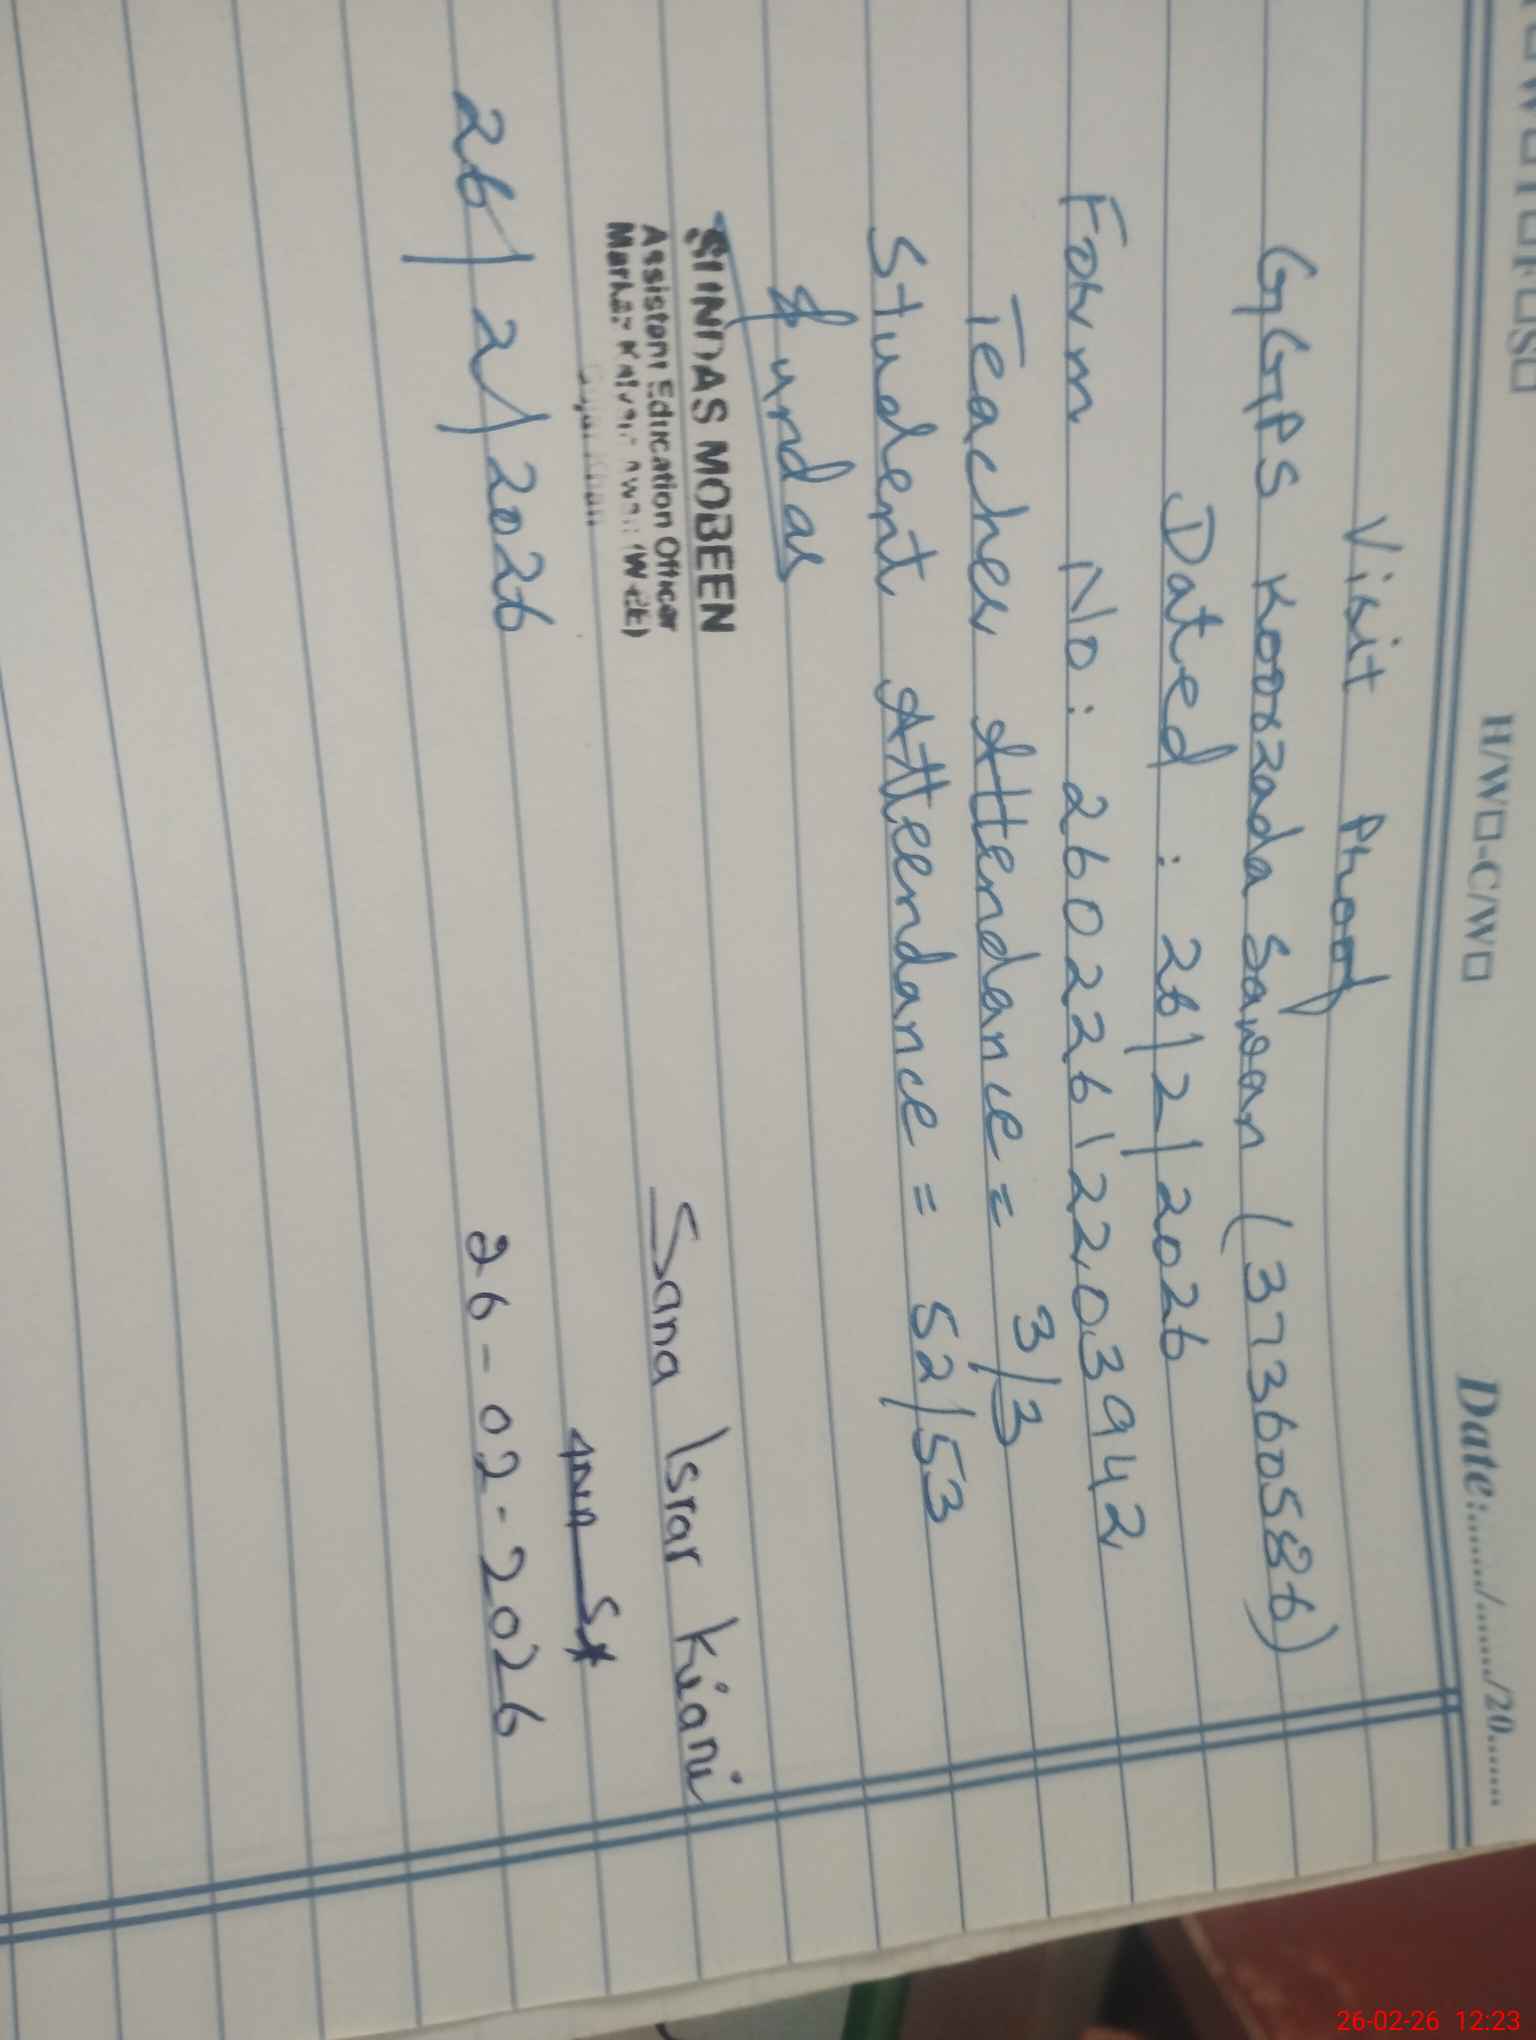 H/W□-C/W□ Date:....../....../20......
Visit Proof
GGPS Koorzada Sawan (37360586)
Dated : 26/2/2026
Form No: 260226122203942
Teacher Attendance = 3/3
Student Atteendance = 52/53
Sundas
SUNDAS MOBEEN
Assistant Education Officer
Markaz (W-EE)
Sana Israr Kiani
26/2/2026
26-02-2026
26-02-26 12:23